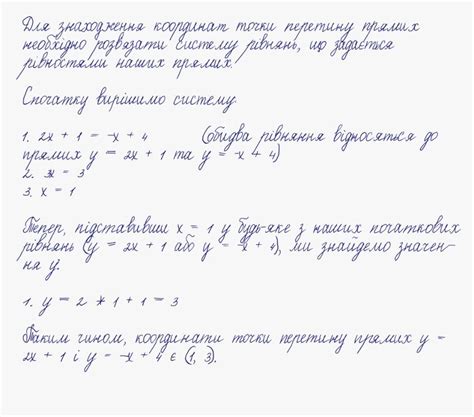 Для знаходження координат точки перетину прямих
необхідно розвязати систему рівнянь, що задається
рівностями наших прямих.
Спочатку вирішимо систему
1. 2x + 1 = -x + 4 (обидва рівняння відносяться до
прямих y = 2x + 1 та y = -x + 4)
2. 3x = 3
3. x = 1
Тепер, підставивши x = 1 у будь-яке з наших початкових
рівнянь (y = 2x + 1 або y = -x + 4), ми знайдемо значен-
ня y.
1. y = 2 * 1 + 1 = 3
Таким чином, координати точки перетину прямих y =
2x + 1 і y = -x + 4 є (1, 3).